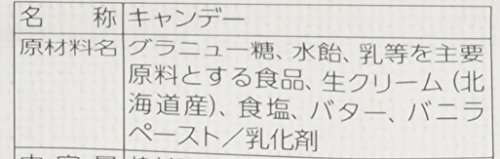 名称 キャンデー
原材料名 グラニュー糖、水飴、乳等を主要
原料とする食品、生クリーム(北
海道産)、食塩、バター、バニラ
ペースト/乳化剤